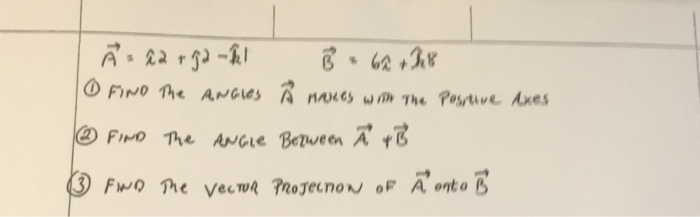 A⃗ = î2 + ĵ2 - k̂1 B⃗ = 6î + k̂8
① FIND The ANGLES A⃗ MAKES WITH The Positive Axes
② FIND The ANGLE Between A⃗ + B⃗
③ FIND The Vector PROJECTION OF A⃗ onto B⃗